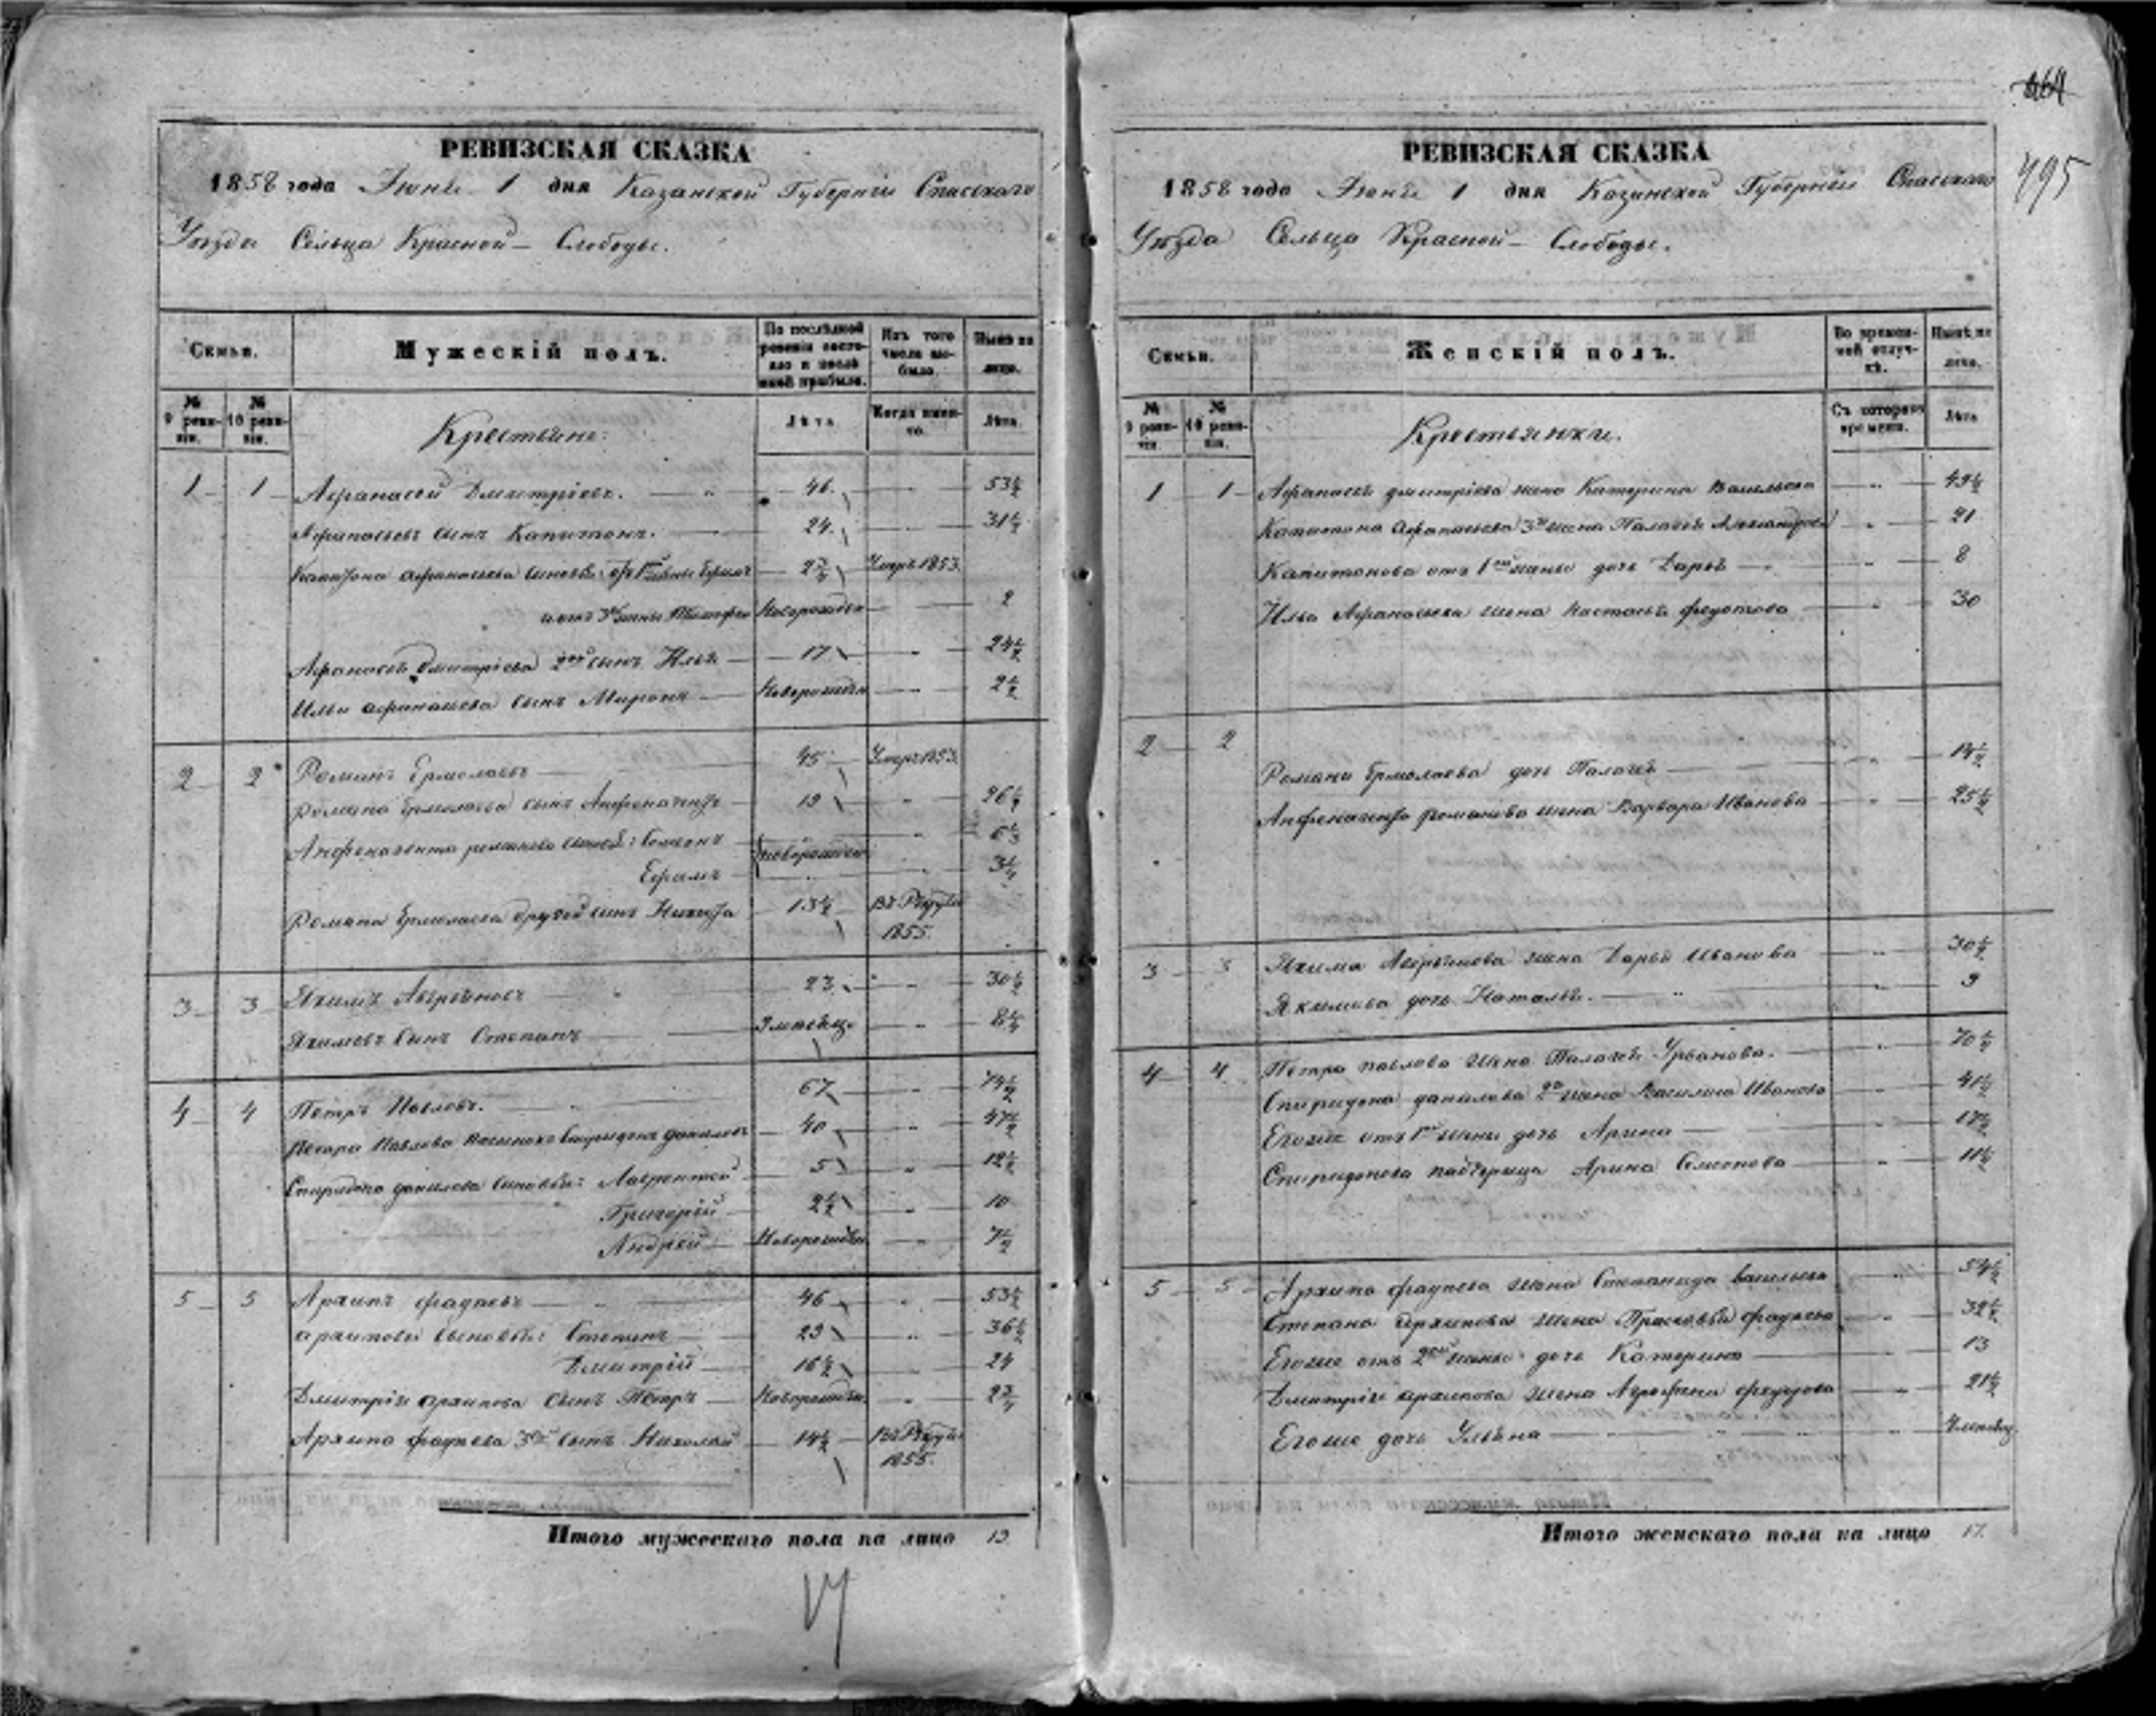 464
495
РЕВИЗСКАЯ СКАЗКА
1858 года Июня 1 дня Казанской Губернiи Спасскаго
Уѣзда Сельца Красной – Слободы.
Семьи.
Мужескiй полъ.
По послѣдней ревизiи состояло и послѣ оной прибыло.
Изъ того числа выбыло.
Нынѣ на лицо.
№ 9 ревизiи.
№ 10 ревизiи.
Крестьяне:
Лѣта.
Когда именно.
Лѣта.
1 1 Афанасей Дмитрiевъ. 46. 53½
Афанасьевъ сынъ Капитонъ. 24. 31½
Капитона Афанасьева сыновья: отъ 1й жены Умеръ 1853.
и отъ 3й жены Тимофей Новорожден 2
Афанасья Дмитрiева 2ой сынъ Илья 17 24½
Ильи Афанасьева сынъ Миронъ Новорожден 2½
2 2 Романъ Ермолаевъ 45 Умеръ 1853.
Романа Ермолаева сынъ 19 26½
романова сыновья: Семенъ новорожден
Ефимъ
Романа Ермолаева другой сынъ Никита 13½ Въ Рекруты
1855.
3 3 Якимъ 23. 30½
Якимовъ сынъ Степанъ 8½
4 4 Петръ Павловъ. 67 74½
Петра Павлова пасынокъ Спиридонъ Даниловъ 40 47½
Спиридона Данилова сыновья: Лаврентей 5 12½
Григорiй 2½ 10
Андрей Новорожден 7½
5 5 Архипъ Фадѣевъ 46 53½
Архиповы сыновья: Степанъ 29 36½
Дмитрiй 16½ 24
Дмитрiя Архипова сынъ Петръ Новорожден
Архипа Фадѣева 3й сынъ Николай 14½ Въ Рекруты
1855.
Итого мужескаго пола на лицо 19
РЕВИЗСКАЯ СКАЗКА
1858 года Июня 1 дня Казанской Губернiи Спасскаго
Уѣзда Сельца Красной – Слободы.
Семьи.
Женскiй полъ.
Во временной отлучкѣ.
Нынѣ на лицо.
№ 9 ревизiи.
№ 10 ревизiи.
Крестьянки.
Съ котораго времени.
Лѣта
1 1 Афанасья Дмитрiева жена Катерина Васильева 49½
Капитона Афанасьева 3я жена Палагея Александрова 21
Капитонова отъ 1ой жены дочь Дарья 8
Ильи Афанасьева жена Настасья Федотова 30
2 2
Романа Ермолаева дочь Палагея 14½
романова жена Варвара Иванова 25½
3 3 Якима жена Дарья Иванова 30½
Якимова дочь Наталья. 9
4 4 Петра Павлова жена Палагея Урванова. 70½
Спиридона Данилова 2я жена Василиса Иванова 41½
Егоже отъ 1й жены дочь Арина 17½
Спиридонова падчерица Арина Семенова 11½
5 5 Архипа Фадѣева жена Степанида Васильева 54½
Степана Архипова жена Прасковья Фадѣева 32½
Егоже отъ 2ой жены дочь Катерина 13
Дмитрiя Архипова жена Агрофена Федорова 21½
Егоже дочь Ульяна
Итого женскаго пола на лицо 17.